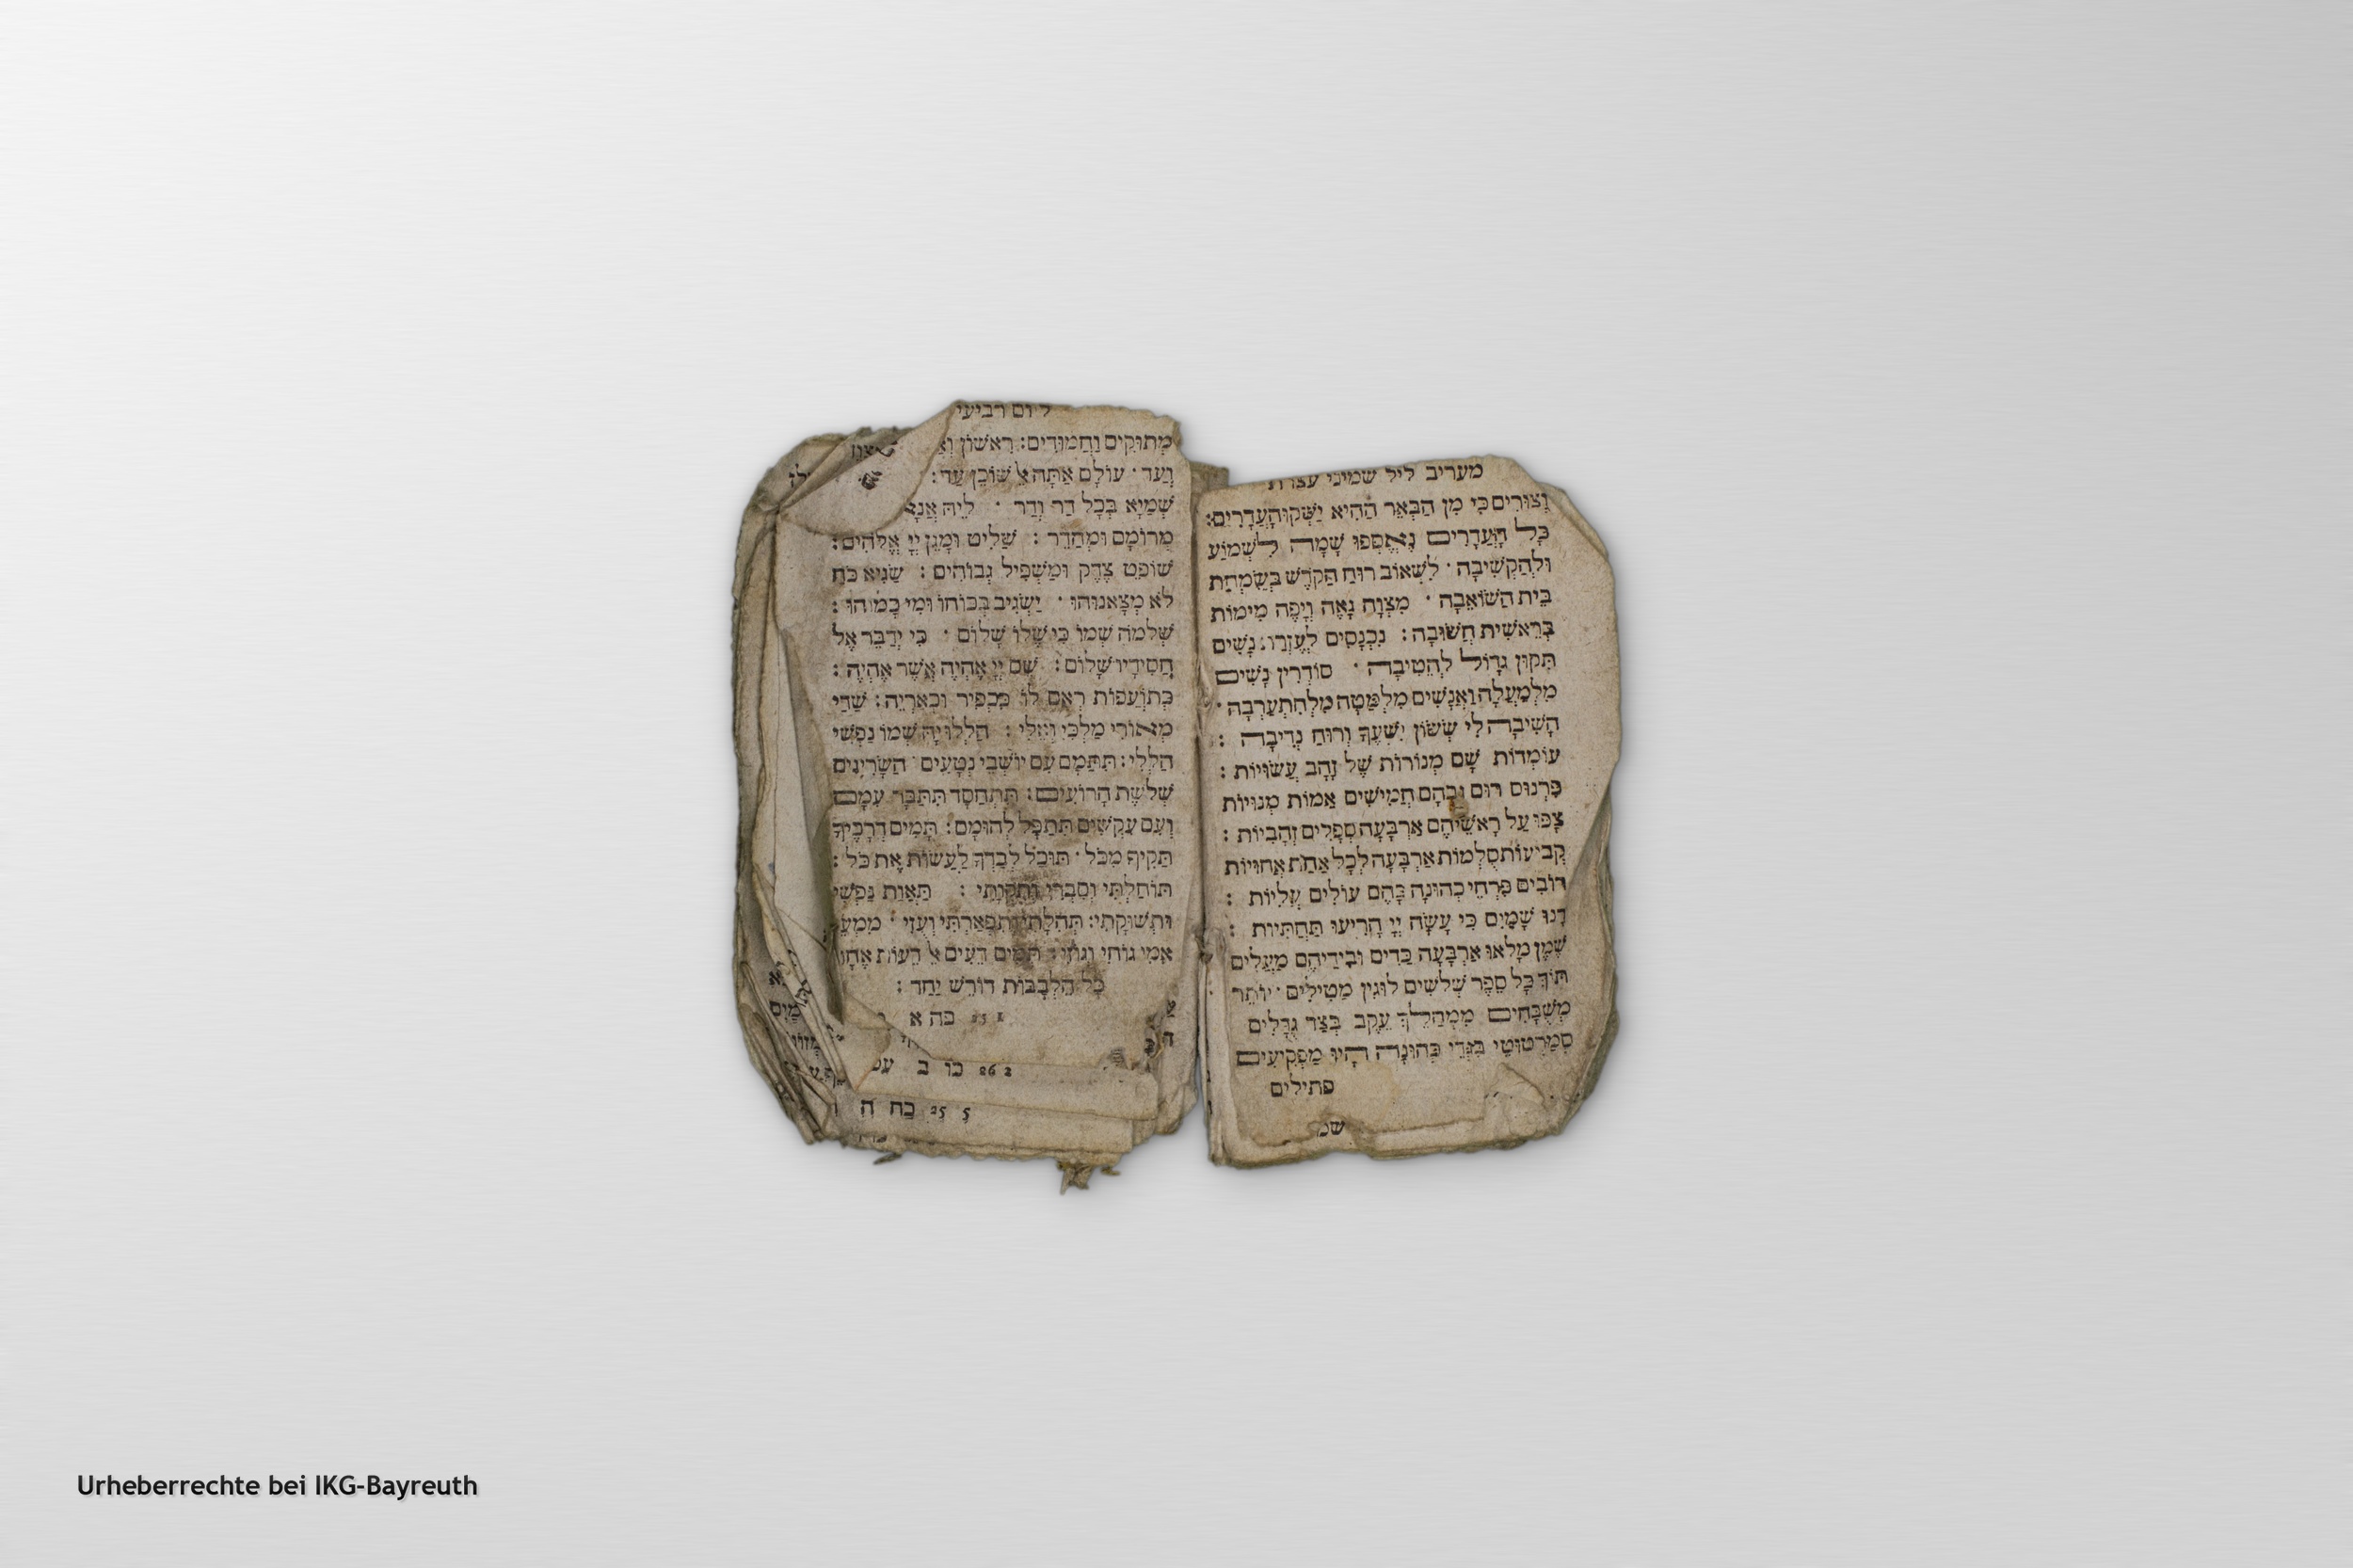 מעריב ליל שמיני עצרת
וְצוּרִים כִּי מִן הַבְּאֵר הַהִיא יַשְׁקוּ הָעֲדָרִים:
כָּל הָעֲדָרִים נֶאֱסְפוּ שָׁמָּה לִשְׁמוֹעַ
וּלְהַקְשִׁיבָה · לִשְׁאוֹב רוּחַ הַקֹּדֶשׁ בְּשִׂמְחַת
בֵּית הַשּׁוֹאֵבָה · מִצְוָה נָאֶה וְיָפֶה מִימוֹת
בְּרֵאשִׁית חֲשׁוּבָה: נִכְנָסִים לְעֶזְרַת נָשִׁים
תִּקּוּן גָּדוֹל לְהֵטִיבָה · סוֹדְרִין נָשִׁים
מִלְמַעְלָה וַאֲנָשִׁים מִלְמַטָּה מִלְּחִתְעַרְבָה ·
הָשִׁיבָה לִּי שְׂשׂוֹן יִשְׁעֶךָ וְרוּחַ נְדִיבָה :
עוֹמְדוֹת שָׁם מְנוֹרוֹת שֶׁל זָהָב עֲשׂוּיוֹת :
פִּרְנוּם רוּם גָּבְהָם חֲמִישִׁים אַמּוֹת מְנוּיוֹת
צָפּוּ עַל רָאשֵׁיהֶם אַרְבָּעָה סְפָלִים זְהָבִיּוֹת :
קְבִיעוֹת סֻלְּמוֹת אַרְבָּעָה לְכָל אַחַת אֲחוּיוֹת
רוֹבִים פִּרְחֵי כְהוּנָּה בָּהֶם עוֹלִים עֲלִיּוֹת :
רָנּוּ שָׁמַיִם כִּי עָשָׂה יְיָ הָרִיעוּ תַּחְתִּיּוֹת :
שֶׁמֶן מָלְאוּ אַרְבָּעָה כַּדִּים וּבִידֵיהֶם מַעֲלִים
תּוֹךְ כָּל סֵפֶר שְׁלֹשִׁים לוּגִּין מַטִּילִים · יוֹתֵר
מְשֻׁבָּחִים מִמְּהַלֵּךְ עֵקֶב בְּצַד גּוּדָּלִים
סְמַרְטוּטֵי בִּגְדֵי כְּהוּנָּה הָיוּ מַפְקִיעִים
פתילים
שמ
ל יום רביעי
מְתוּקִים וַחֲמוּדִים: רִאשׁוֹן
וָעֶד · עוֹלָם אַתָּה אֵל שׁוֹכֵן עַד:
שְׁמַיָּא בְּכָל דַּר וְדַר · לֵיהּ אֲנָא
מְרוֹמָם וּמְהַדַּר : שַׁלִּיט וּמָגֵן יְיָ אֱלֹהִים:
שׁוֹפֵט צֶדֶק וּמַשְׁפִּיל גְּבוֹהִים : שַׂגִּיא כֹּחַ
לֹא מְצָאנוּהוּ · יַשְׂגִּיב בְּכוֹחוֹ וּמִי כָמוֹהוּ :
שְׁלֹמֹה שְׁמוֹ כִּי שֶׁלּוֹ שָׁלוֹם · כִּי יְדַבֵּר אֶל
חֲסִידָיו שָׁלוֹם : שֵׁם יְיָ אֶהְיֶה אֲשֶׁר אֶהְיֶה :
כְּתוֹעֲפוֹת רְאֵם לוֹ כִּכְפִיר וּכְאַרְיֵה: שַׁדַּי
מְאוֹרִי מַלְכִּי וְאֵלִי : הַלְלוּיָהּ שְׁמוֹ נַפְשִׁי
הַלְלִי: תִּתַּמָּם עִם יוֹשְׁבֵי נְטָעִים · הַשָּׂרִיגִים
שְׁלֹשֶׁת הָרוֹעִים: תִּתְחַסָּד תִּתְבָּר עִמָּם
וְעִם עִקְּשִׁים תִּתַּפָּל לְהוּמָּם: תָּמִים דְּרָכֶיךָ
תַּקִּיף מִכֹּל · תּוּכַל לְבַדְּךָ לַעֲשׂוֹת אֶת כֹּל :
תּוֹחַלְתִּי וְסִבְרִי וְתִקְוָתִי : תַּאֲוַת נַפְשִׁי
וּתְשׁוּקָתִי: תְּהִלָּתִי וְתִפְאַרְתִּי וְעֻזִּי · מִמְּעֵי
אִמִּי גּוֹחִי וְגוֹזִי : תְּמִים דֵּעִים אֵל דֵּעוֹת אֶחָד
כָּל הַלְּבָבוֹת דּוֹרֵשׁ יַחַד :
25 1 כה א
26 2 כו ב
25 5 כח ה
Urheberrechte bei IKG-Bayreuth